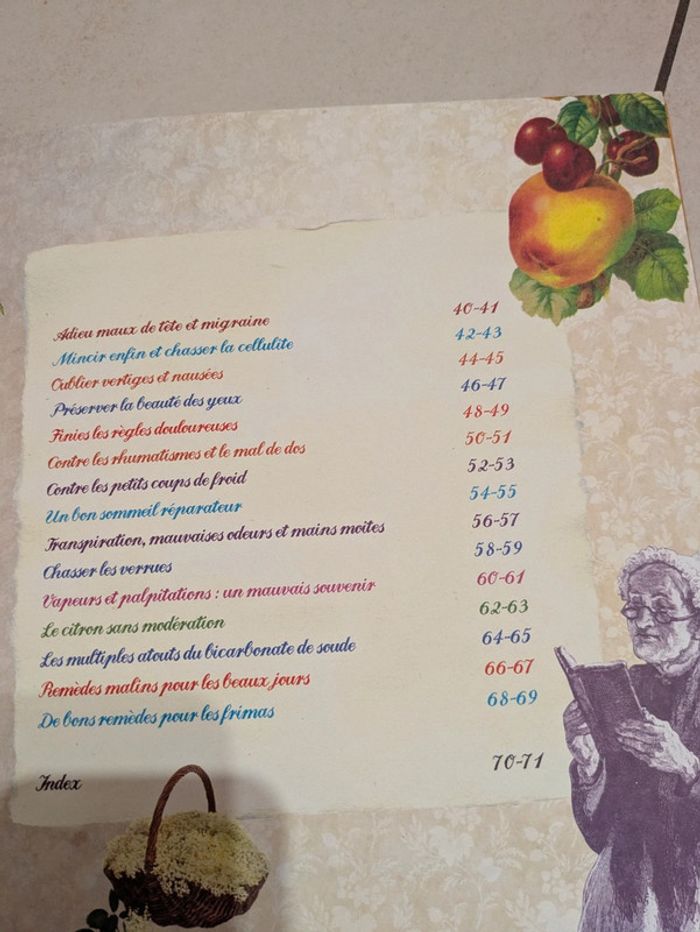 Adieu maux de tête et migraine 40-41
Mincir enfin et chasser la cellulite 42-43
Oublier vertiges et nausées 44-45
Préserver la beauté des yeux 46-47
Finies les règles douloureuses 48-49
Contre les rhumatismes et le mal de dos 50-51
Contre les petits coups de froid 52-53
Un bon sommeil réparateur 54-55
Transpiration, mauvaises odeurs et mains moites 56-57
Chasser les verrues 58-59
Vapeurs et palpitations : un mauvais souvenir 60-61
Le citron sans modération 62-63
Les multiples atouts du bicarbonate de soude 64-65
Remèdes malins pour les beaux jours 66-67
De bons remèdes pour les frimas 68-69
Index 70-71